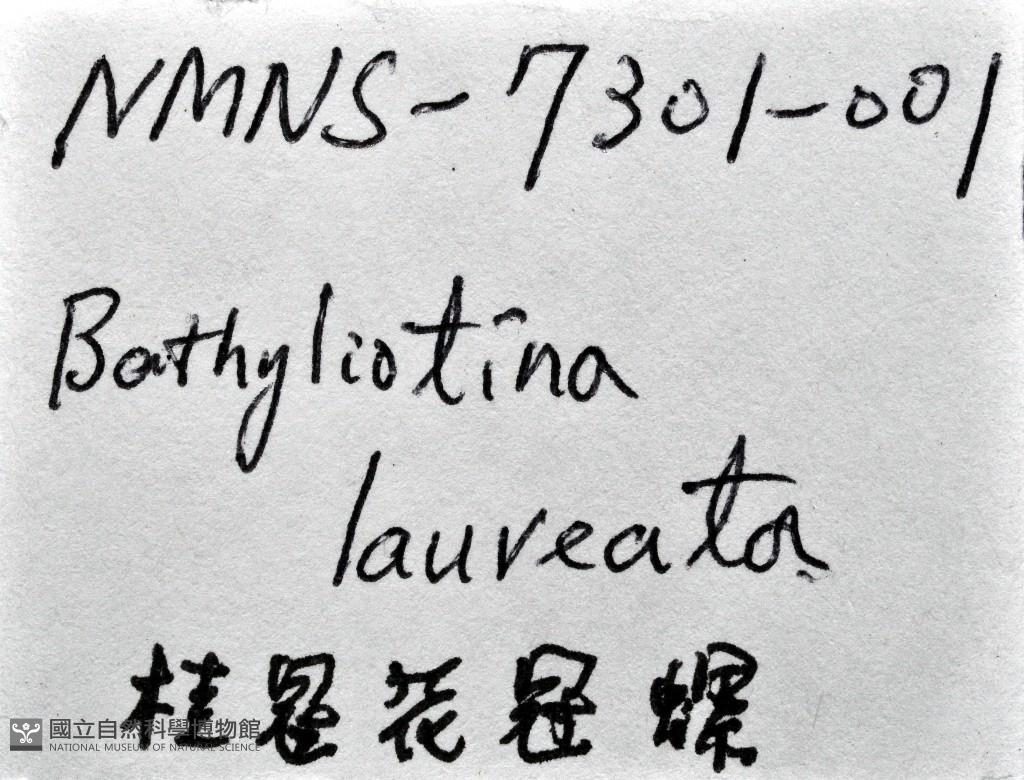 NMNS-7301-001
Bathyliotina
laureata
桂冠花冠螺
國立自然科學博物館
NATIONAL MUSEUM OF NATURAL SCIENCE